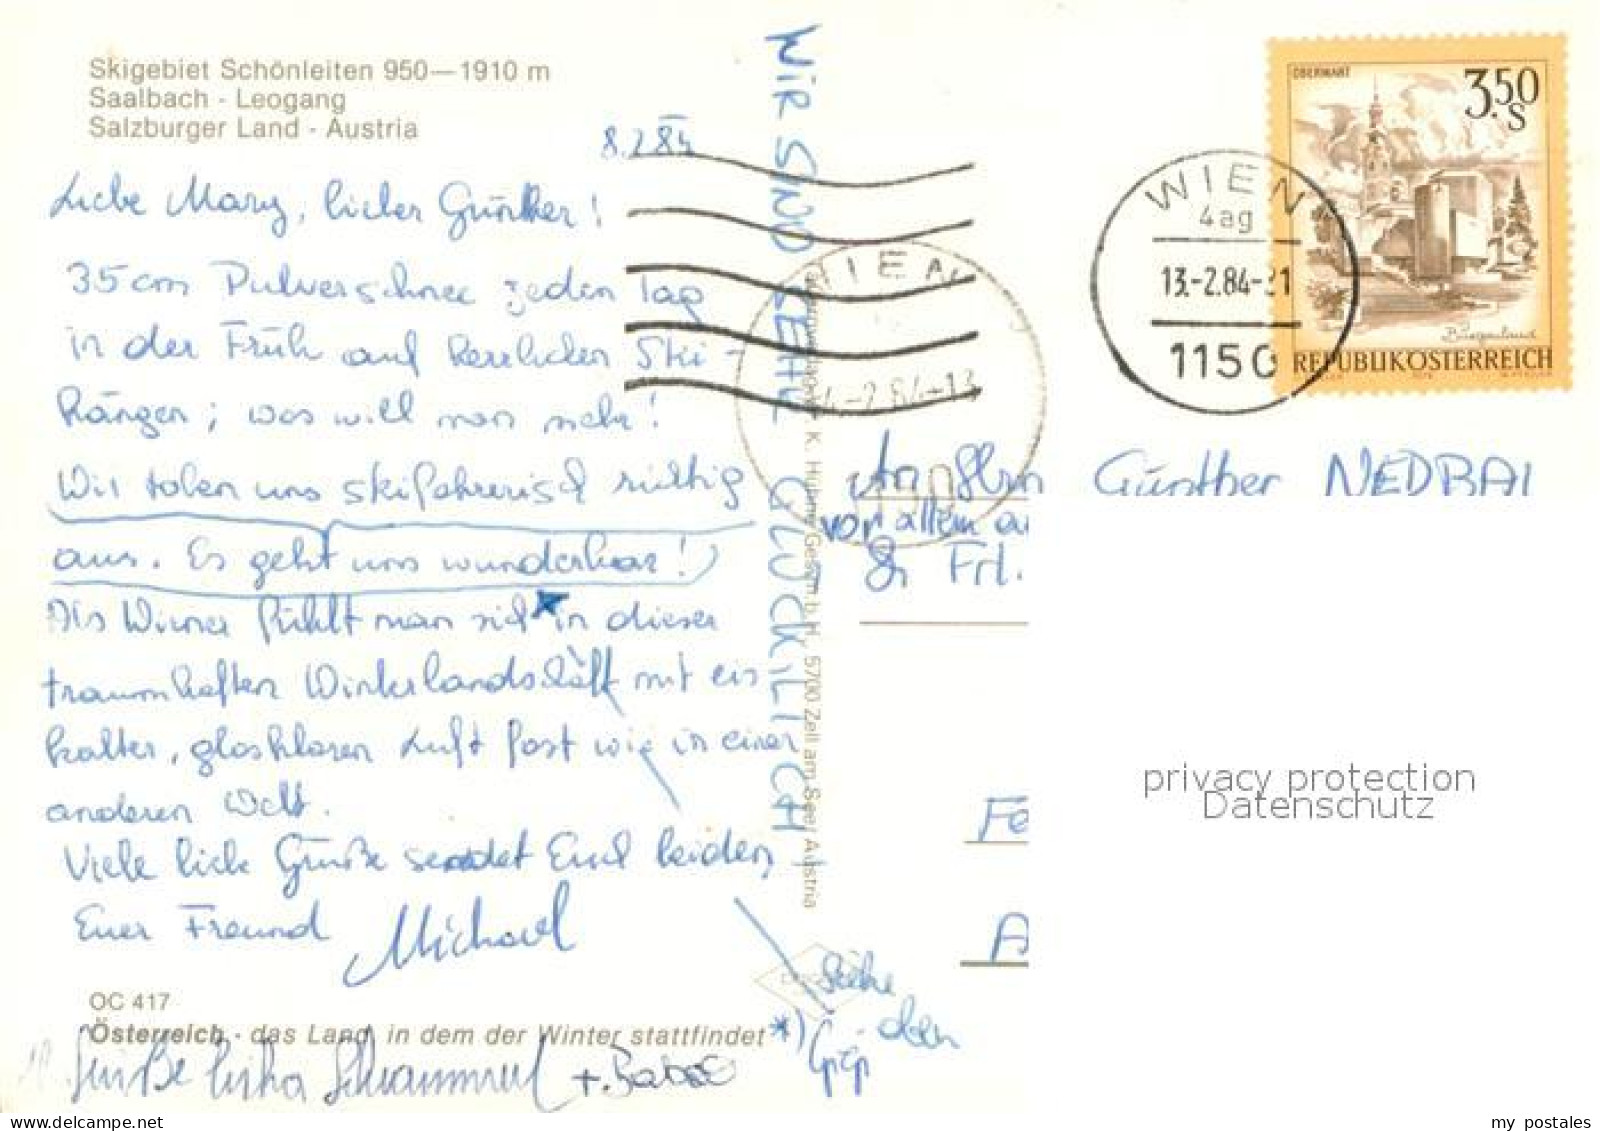 Skigebiet Schönleiten 950—1910 m
Saalbach - Leogang
Salzburger Land - Austria
8.2.84
Liebe Mary, lieber Günther!
35 cm Pulverschnee jeden Tag
in der Früh auf herrlichen Ski-
hängen; was will man mehr!
Wir toben uns skifahrerisch richtig
aus. Es geht uns wunderbar!
Als Wiener fühlt man sich * in dieser
traumhaften Winterlandschaft mit eis-
kalter, glasklaren Luft fast wie in einer
anderen Welt.
Viele liebe Grüße sendet Euch beiden
Euer Freund Michael
OC 417
Österreich - das Land, in dem der Winter stattfindet
Grüße
WIR SIND SEHR GLÜCKLICH
K. Hübner Ges.m.b.H. 5700 Zell am See/Austria
*) Siehe
den
Gipfel
OBERWART
3.50 S
Burgenland
REPUBLIK ÖSTERREICH
WIEN
4ag
13.-2.84-
1150
WIEN
An Hrn Günther NEDBAL
vor allem
& Frl.
FE
A
privacy protection
Datenschutz
my postales